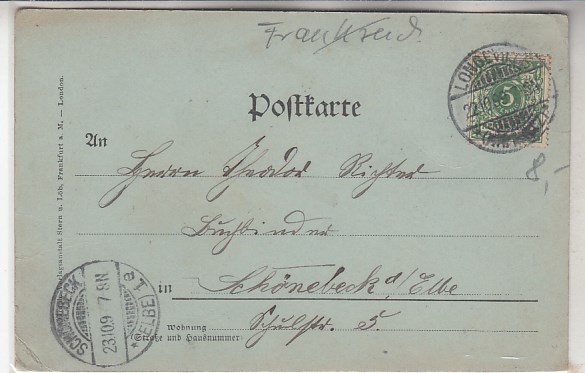 Frankreich
Postkarte
LONGEVILLE
5
8,-
An
Herrn Theodor Richter
Buchbinder
in Schönebeck a/Elbe
Wohnung
(Straße und Hausnummer)
Schulstr. 5.
SCHÖNEBECK
23.10.9 7-8N
* (ELBE) a
Verlagsanstalt Stern u. Löb, Frankfurt a. M. — London.